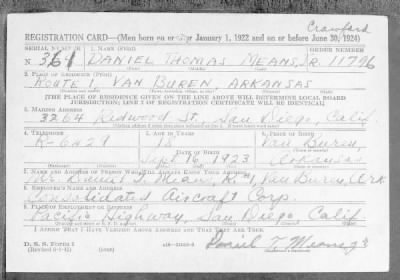 Crawford
REGISTRATION CARD—(Men born on or after January 1, 1922 and on or before June 30, 1924)
SERIAL NUMBER 1. NAME (Print) ORDER NUMBER
N 361 DANIEL THOMAS MEANS, JR. 11796
(First) (Middle) (Last)
2. PLACE OF RESIDENCE (Print)
ROUTE 1 VAN BUREN ARKANSAS
[THE PLACE OF RESIDENCE GIVEN ON THE LINE ABOVE WILL DETERMINE LOCAL BOARD
JURISDICTION; LINE 2 OF REGISTRATION CERTIFICATE WILL BE IDENTICAL]
3. MAILING ADDRESS
3264 Redwood St., San Diego, Calif.
4. TELEPHONE 5. AGE IN YEARS 6. PLACE OF BIRTH
18 Van Buren,
DATE OF BIRTH
Sept 16, 1923 Arkansas
7. NAME AND ADDRESS OF PERSON WHO WILL ALWAYS KNOW YOUR ADDRESS
Mr. Daniel T. Means, R. #1, Van Buren, Ark
8. EMPLOYER'S NAME AND ADDRESS
Consolidated Aircraft Corp.
9. PLACE OF EMPLOYMENT OR BUSINESS
Pacific Highway, San Diego, Calif
I AFFIRM THAT I HAVE VERIFIED ABOVE ANSWERS AND THAT THEY ARE TRUE.
D. S. S. Form 1
(Revised 6-1-42) (over)
Daniel T. Means Jr